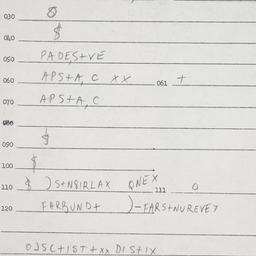 030
040 $
050 PADES+VE
060 APS+A, C XX 061 +
070 APS+A, C
080
090 $
100 $
110 $ )S+N8IRLAX QNEX 111 0
120 FARBUND+ )-FARS+NUREVE7
OJSC+IST+XX DISTIX